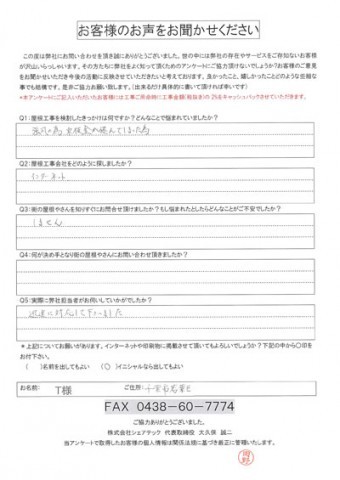 お客様のお声をお聞かせください
この度は弊社にお問い合わせを頂き誠にありがとうございました。世の中には弊社の存在やサービスをご存知ないお客様
が沢山いらっしゃいます。その方たちに弊社をよく知って頂くためのアンケートにご協力頂けないでしょうか?お客様のご意見
をお聞かせいただき今後の活動に反映させていただきたいと考えております。良かったこと、嬉しかったことどのような些細な
事でも結構です。是非ご協力お願い致します。(出来るだけ具体的に書いて頂ければ幸いです)
*本アンケートにご記入いただいたお客様には工事ご用命時に工事金額(税抜き)の2%をキャッシュバックさせていただきます。
Q1:屋根工事を検討したきっかけは何ですか?どんなことで悩まれていましたか?
Q2:屋根工事会社をどのように探しましたか?
インターネット
Q3:街の屋根やさんを知りすぐにお問合せ頂けましたか?もし悩まれたとしたらどんなことがご不安でしたか?
しません
Q4:何が決め手となり街の屋根やさんにお問い合わせ頂きましたか?
Q5:実際に弊社担当者がお伺いしていかがでしたか?
迅速に対応して下さいました
*上記についてお願いがあります。インターネットや印刷物に掲載させて頂いてもよろしいでしょうか?下記の中から○印を
お付下さい。
( )名前を出してもよい (○)イニシャルなら出してもよい
お名前: T様 ご住所: 千葉市若葉区
FAX 0438-60-7774
ご協力ありがとうございました。
株式会社シェアテック 代表取締役 大久保 誠二
当アンケートで取得したお客様の個人情報は関係法規に基づき厳正に管理いたします。